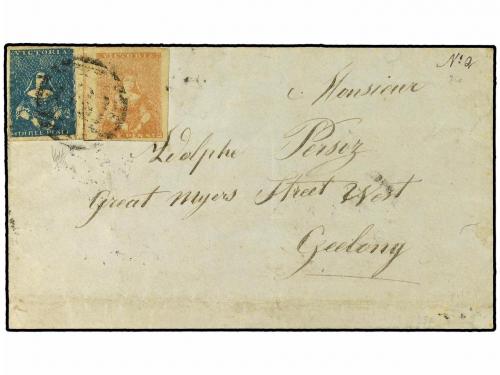 VICTORIA VICTORIA
THREE PENCE
No 2
Monsieur
Adolphe Persiz
Great Myers Street West
Geelong